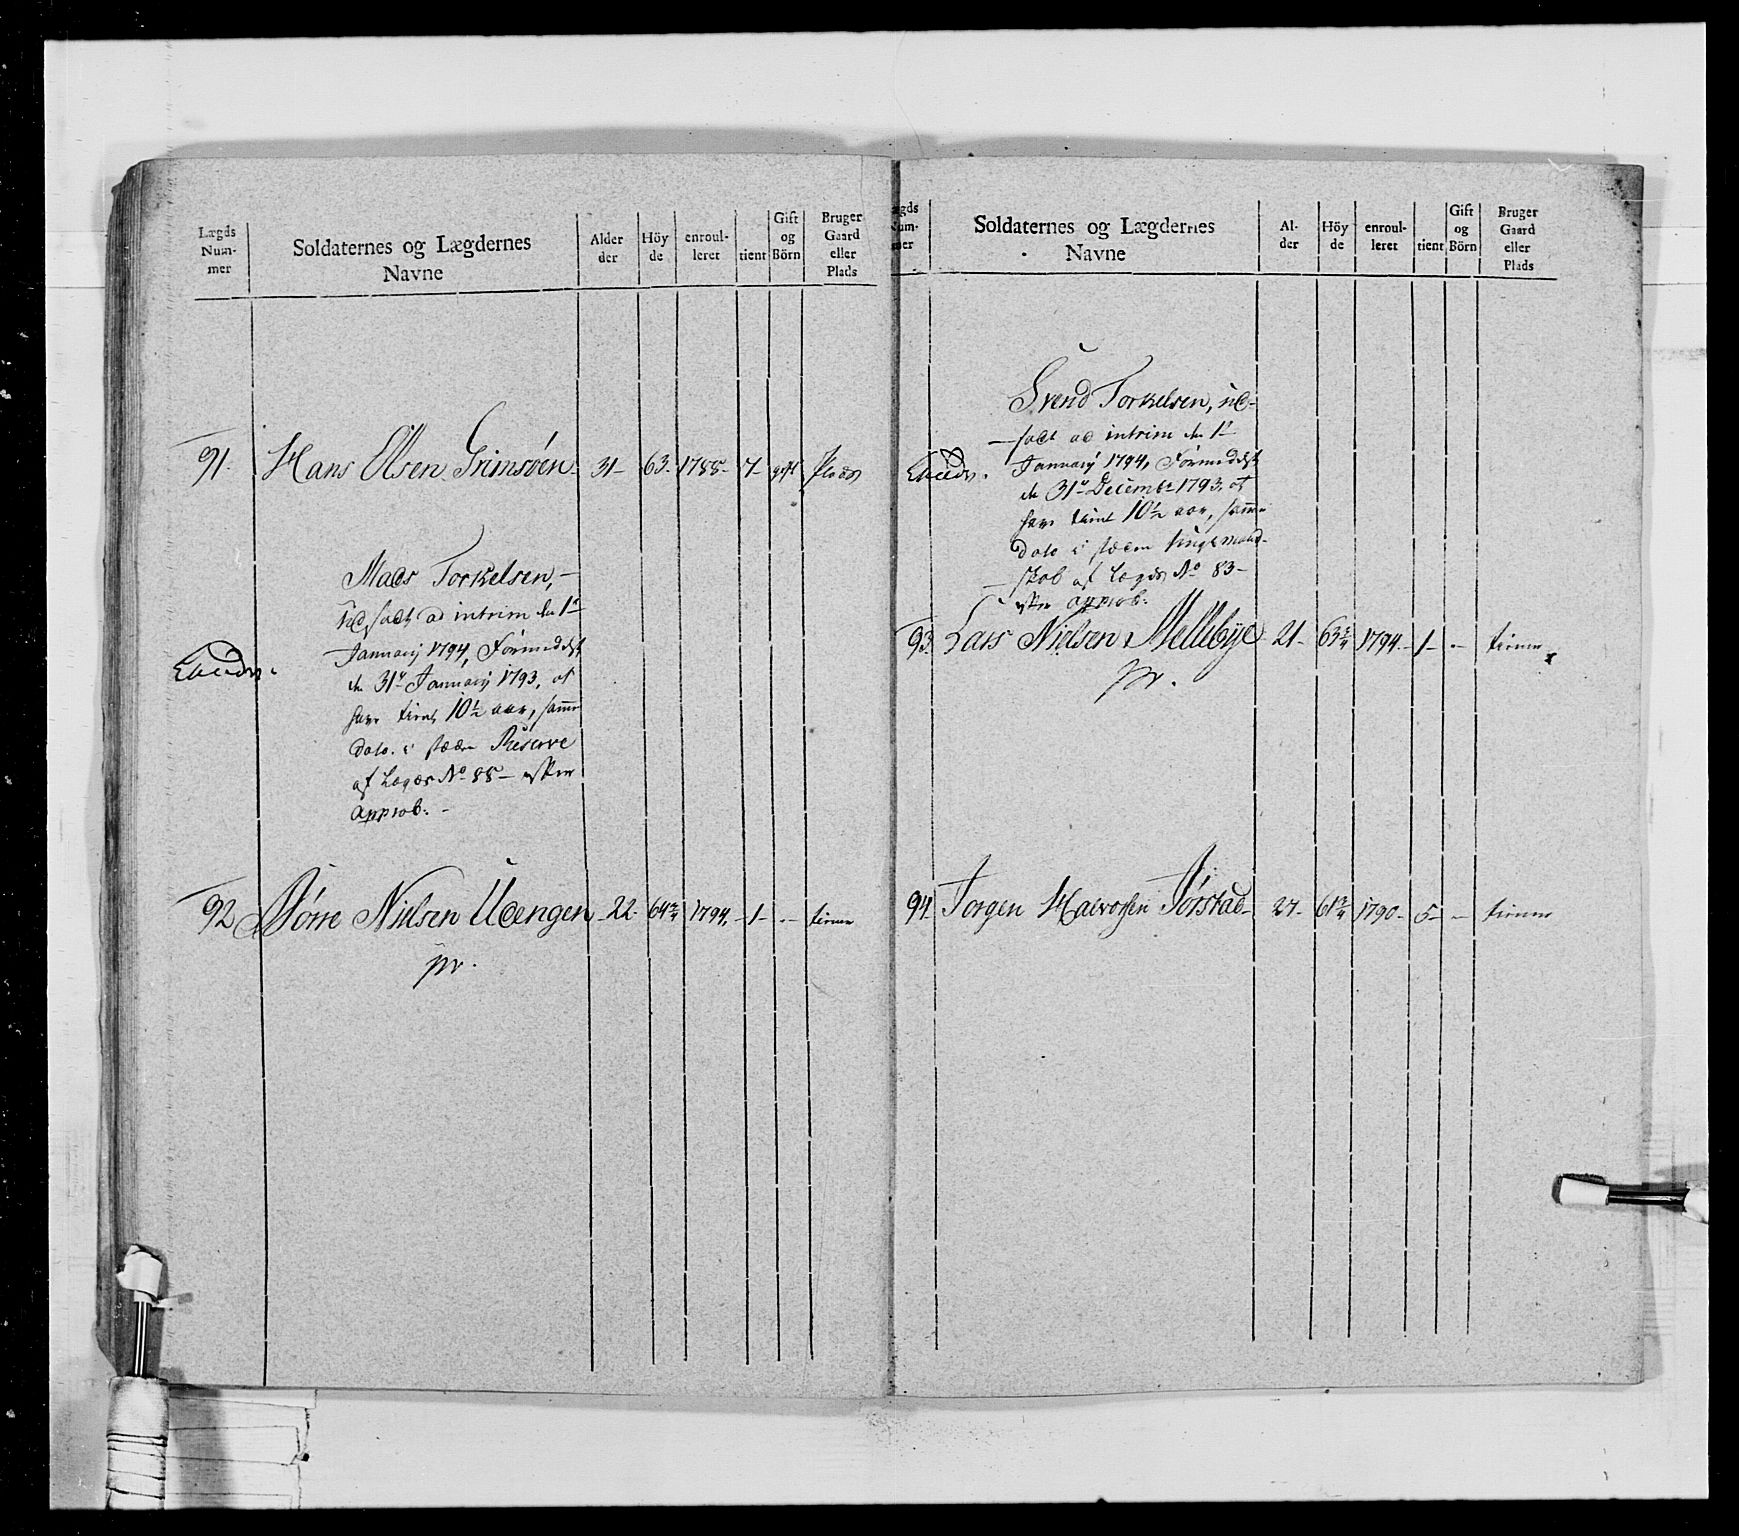 Lægds
Num-
mer
Soldaternes og Lægdernes
Navne
Alder
der
Höy
de
enroul-
leret
tient
Gift
og
Börn
Bruger
Gaard
eller
Plads
91. Hans Olsen Grimsöen 31- 63- 1788- 7- gift Plads
Mads Torkelsen,-
udsadt ad intrim den 1te
January 1794, Formedelst
den 31te January 1793, at
have tient 10½ aar, samme
dato i stæden Reserve
af Lægds No 88-
approb.-
92 Nilsen Uvengen 22- 64 2/4 1794- 1- - tiener
pr.
Lægds
Num-
mer
Soldaternes og Lægdernes
Navne
Al-
der
Höy
de
enroul-
leret
tient
Gift
og
Börn
Bruger
Gaard
eller
Plads
Svend Torkelsen, ud-
sadt ad intrim den 1te
January 1794, Formedelst
den 31te Decembr 1793. at
have tient 10½ aar, samme
dato i stæden
skab af Lægds No 83-
approb.
93. Lars Nielsen Mellebye 21- 63 2/4 1794- 1- - tiener
pr.
94. Jorgen Halvorsen Jörstad 27- 61 2/4 1790- 5- - tiener